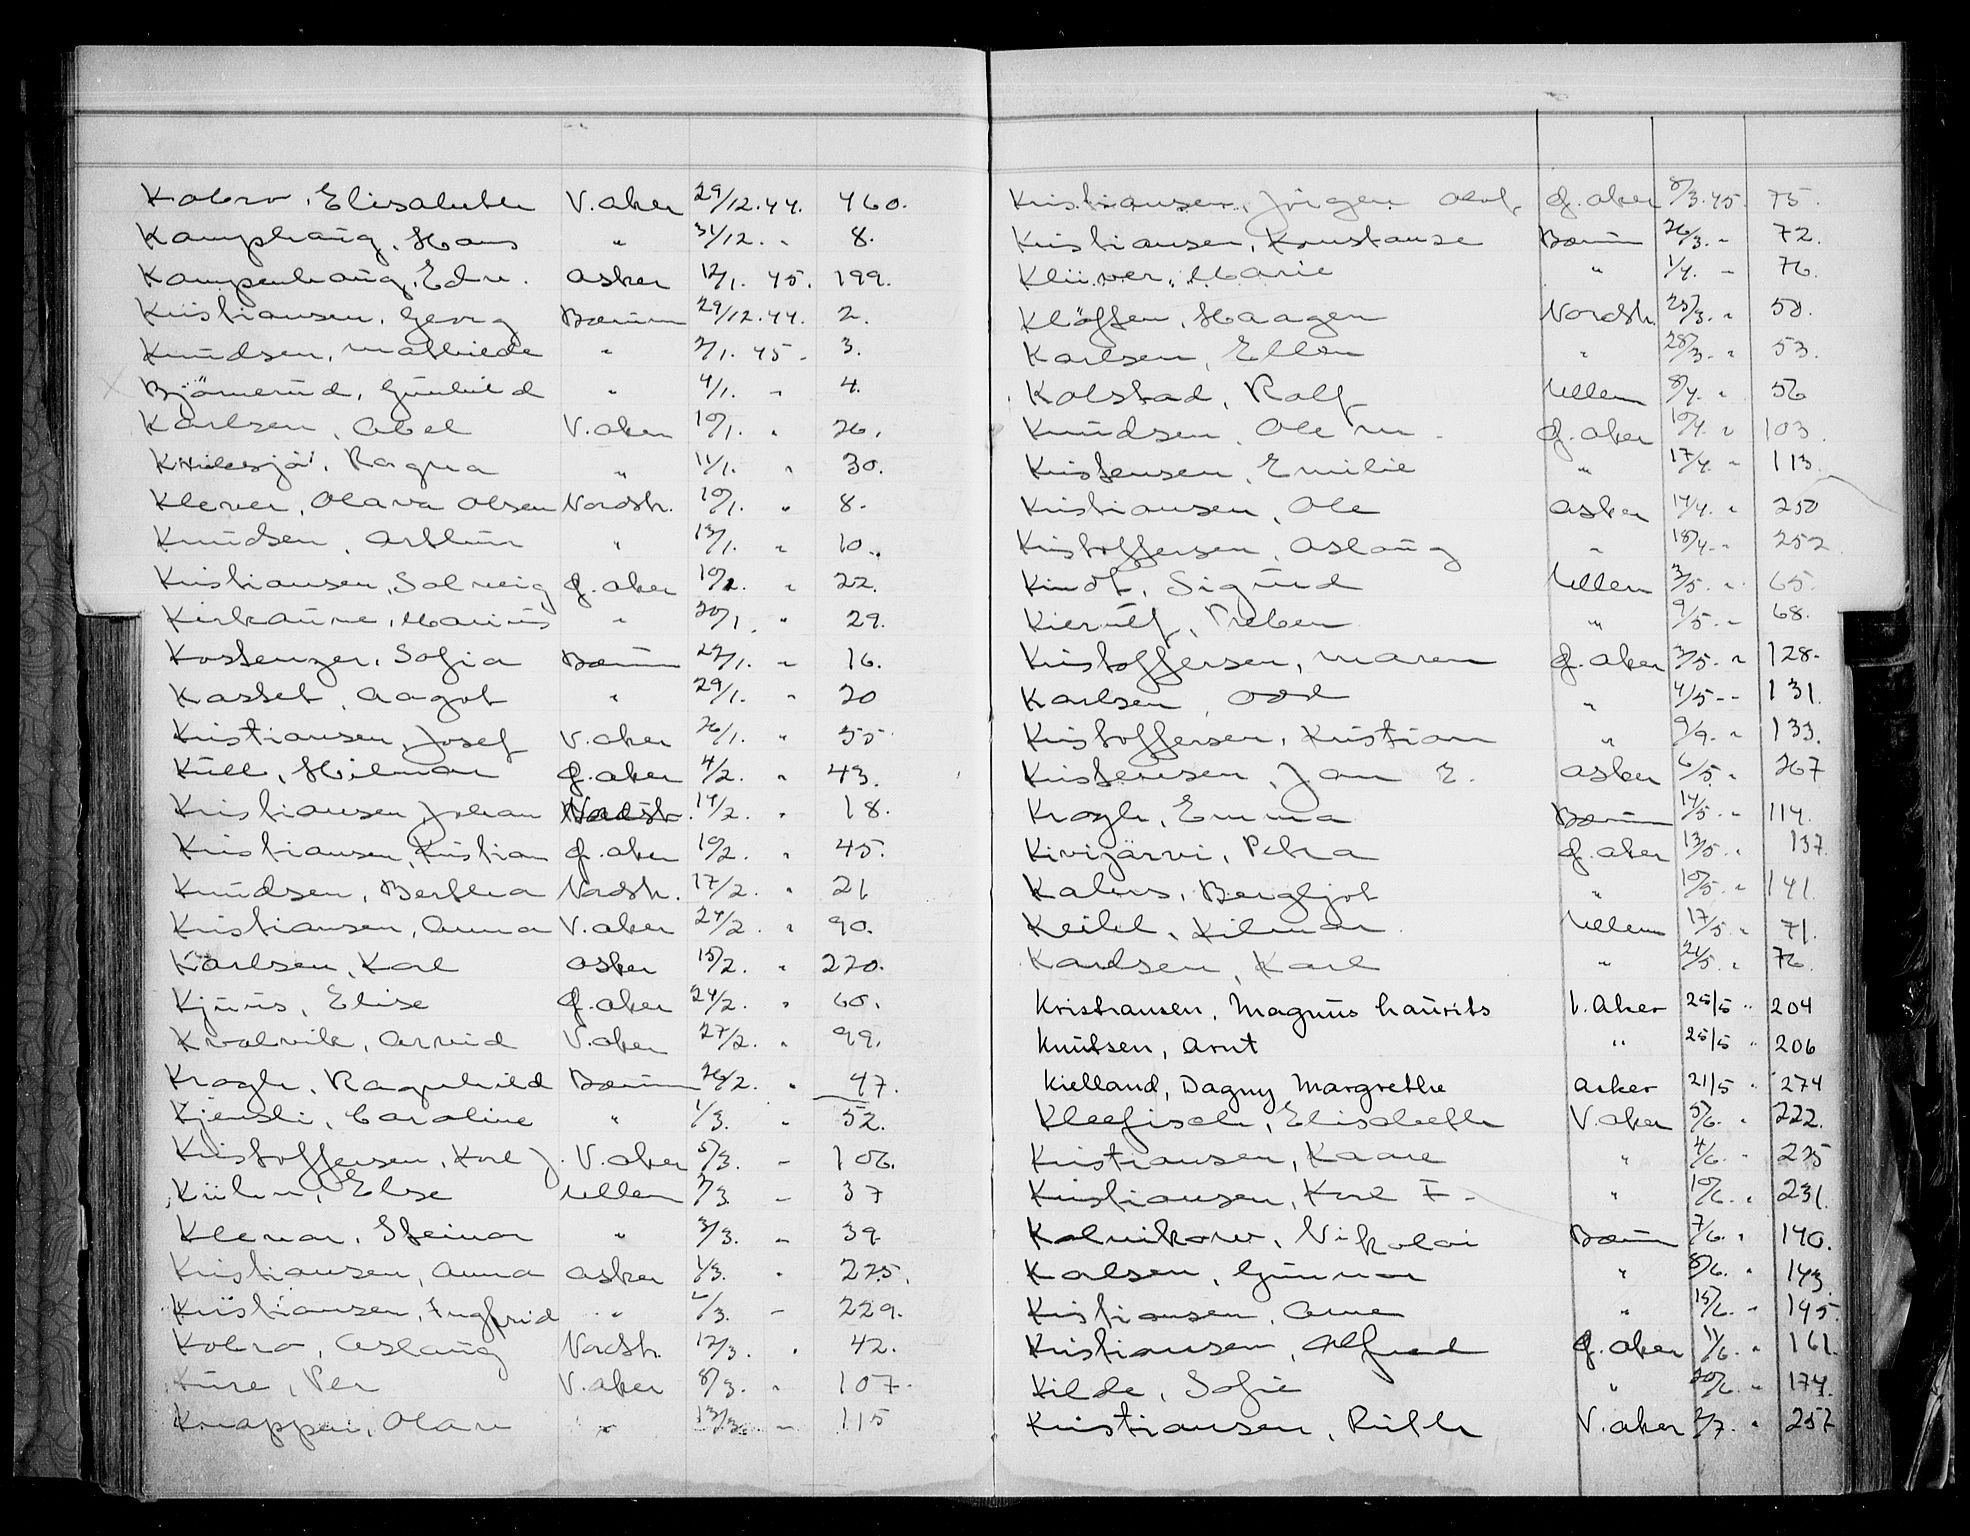 Kobro, Elisabeth V. aker 29/12. 44. 460.
Kamphaug, Hans " 31/12. " 8.
Kampenhaug, Edv. Asker 12/1. 45. 199.
Kristiansen, Georg Bærum 29/12. 44. 2.
Knudsen, Mathilde " 2/1. 45 - 3.
Björnerud, Gunhild " 4/1. " 4.
Karlsen, Abel V. aker 10/1. " 26.
Ragna " 11/1. " 30.
Klever, Olava Olsen Nordstr. 10/1. " 8.
Knudsen, Arthur " 13/1. " 10.
Kristiansen, Solveig Ø. aker 10/1. " 22.
Marius " 20/1. " 29.
Kostenzer, Sofia Bærum 24/1. " 16.
Kasset, Aagot " 29/1. " 20
Kristiansen, Josef V. aker 26/1. " 55
Kull, Hilmar Ø. aker 4/2. " 43.
Kristiansen Johan Nordstr. 14/2. " 18.
Kristiansen, Kristian Ø. aker 10/2. " 45.
Knudsen, Berthea Nordstr. 17/2. " 21
Kristiansen, Anna V. aker 24/2. " 90.
Karlsen, Karl Asker 15/2. " 220.
Kjuus, Elise Ø. aker 24/2. " 60.
Kvalvik, Arvid V. aker 27/2. " 99.
Krogh, Ragnhild Bærum 26/2. " 47.
Kjensli, Caroline " 1/3. " 52.
Kristoffersen, Karl J. V. aker 5/3. " 106.
Else Ullern 2/3. " 37
Klevar, Steinar " 3/3. " 39.
Kristiansen, Anna Asker 1/3. " 225.
Kristiansen, Ingfrid " /3. " 229.
Kobro, Aslaug Nordstr. 12/3. " 42.
Kure, Per V. aker 8/3. " 107.
Olav " 13/3. " 115
Kristiansen, Jörgen Olaf Ø. aker 8/3. 45. 75.
Kristiansen, Konstanse Bærum 26/3. " 72.
Klüwer, Marie " 1/4. " 76.
Haagen Nordstr. 25/3. " 50.
Karlsen, Ellen " 28/3. " 53.
Kolstad, Ralf Ullern 8/4. " 56
Knudsen, Ole M. Ø. aker 10/4. " 103.
Kristensen, Emilie " 17/4. " 113.
Kristiansen, Ole Asker 14/4. " 250
Kristoffersen, Aslaug " 18/4. " 252.
Kindt, Sigurd Ullern 3/5. " 65.
Kierulf, Preben " 9/5. " 68.
Kristoffersen, Maren Ø. aker 3/5. " 128.
Karlsen, Odd " 4/5 " 131.
Kristoffersen, Kristian " 9/9. " 133.
Kristensen, Jan E. Asker 6/5. " 267
Krogh, Emma Bærum 14/5. " 114.
Kivijärvi, Petra Ø. aker 13/5. " 137.
Kahrs, Bergljot " 10/5. " 141.
Keitel, Hilmar Ullern 17/5. " 71.
Karlsen, Karl " 21/5. " 76.
Kristiansen, Magnus Laurits V. Aker 25/5 " 204
Knutsen, Arnt " 25/5 " 206
Kielland, Dagny Margrethe Asker 21/5 " 274
Kleefisch, Elisabeth V. aker 5/6. " 222.
Kristiansen, Kaare " 4/6. " 225
Kristiansen, Karl F. " 10/6. " 231.
Kolnikow, Nikolai Bærum 7/6. " 140.
Karlsen, Gunnar " 8/6. " 143.
Kristiansen, Arne " 15/6. " 145.
Kristiansen, Alfred Ø. aker 11/6. " 161.
Kilde, Sofie " 20/6. " 174.
Kristiansen, Ruth V. aker 2/7. " 257